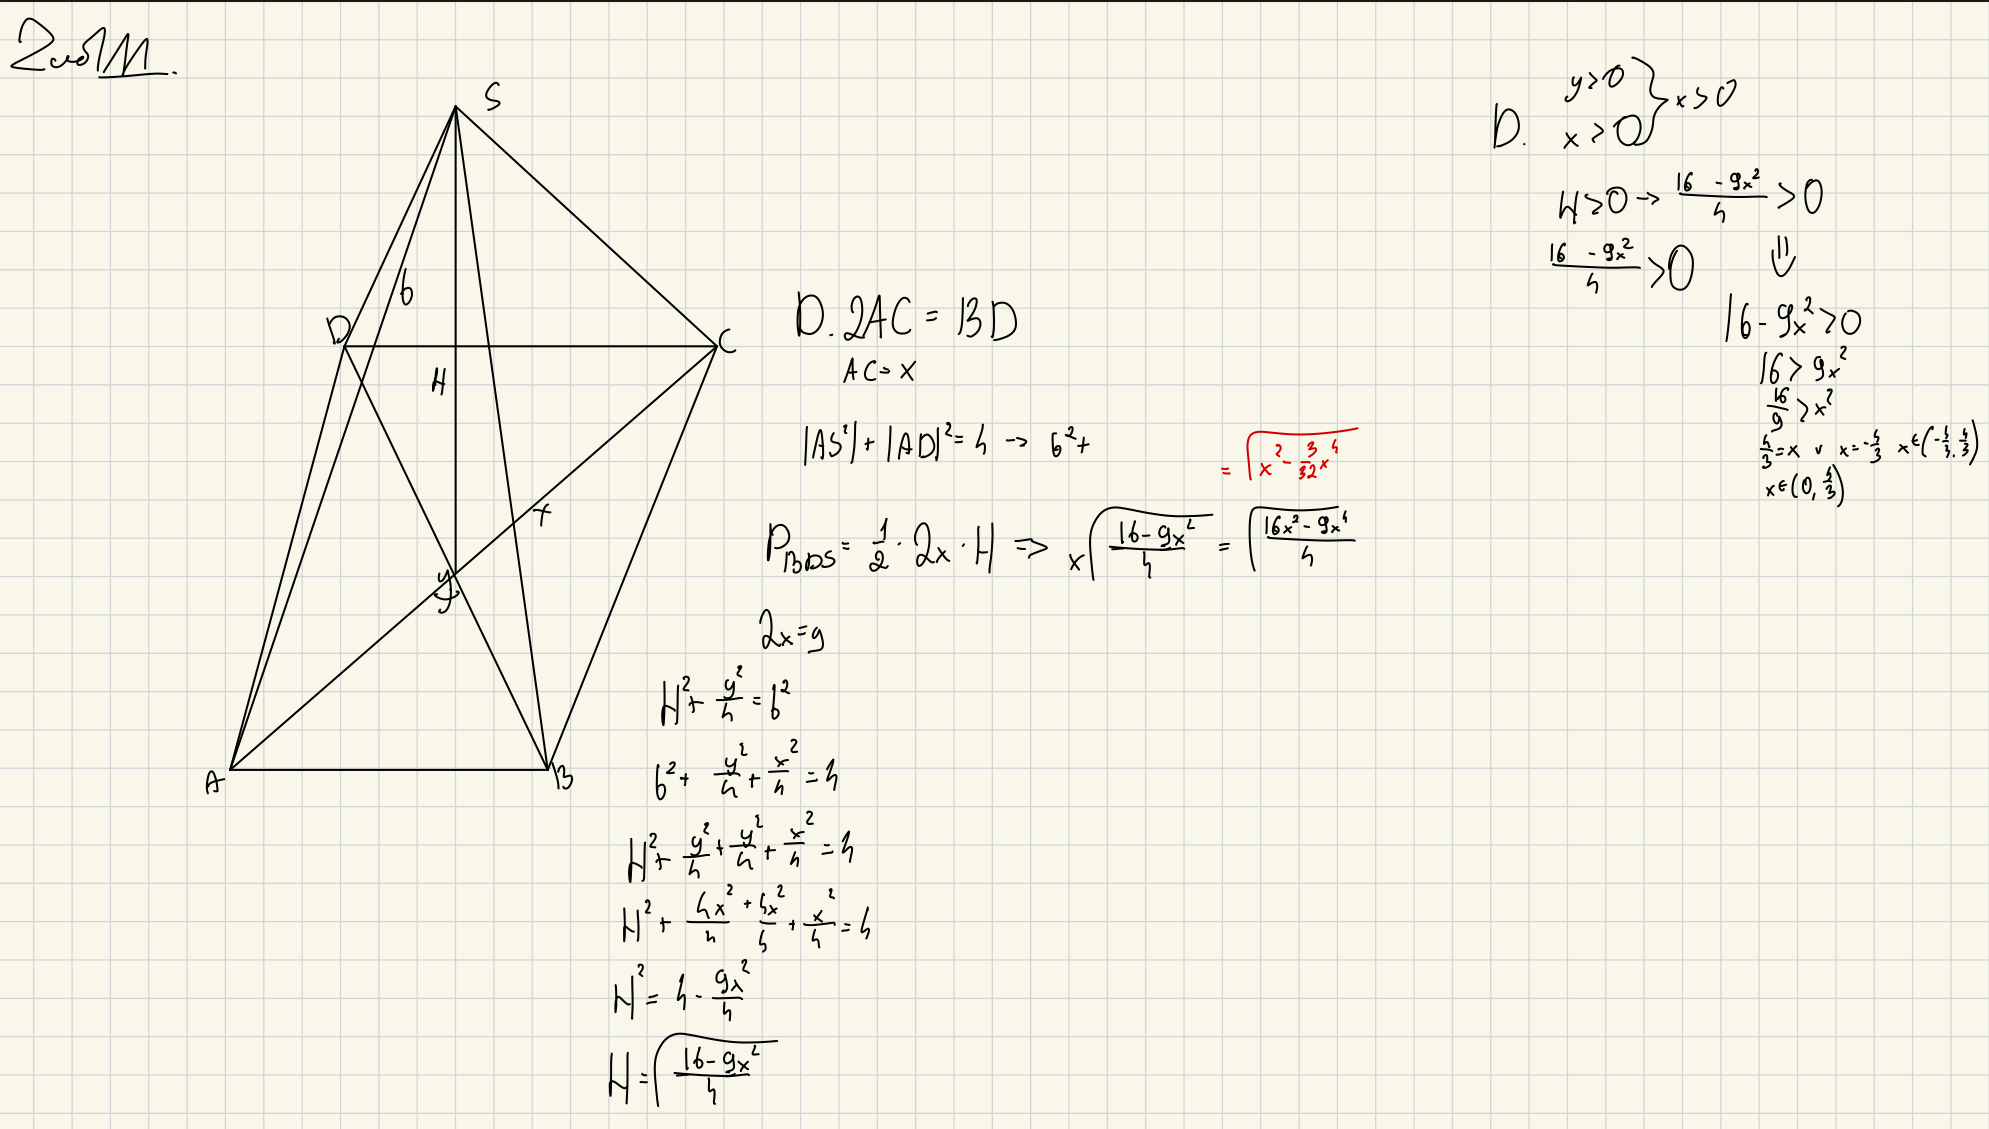 S
D
C
A
B
b
H
x
y
D. 2AC = BD
AC = x
|AS²| + |AD|² = 4 → b² +
= √(x² - 3/32 x⁴)
P_BDS = 1/2 · 2x · H => x√((16 - 9x²)/4) = √((16x² - 9x⁴)/4)
2x = y
H² + y²/4 = b²
b² + y²/4 + x²/4 = 4
H² + y²/4 + y²/4 + x²/4 = 4
H² + 4x²/4 + 4x²/4 + x²/4 = 4
H² = 4 - 9x²/4
H = √((16 - 9x²)/4)
D. y > 0
x > 0 } x > 0
H > 0 → (16 - 9x²)/4 > 0
(16 - 9x²)/4 > 0 ⇓
16 - 9x² > 0
16 > 9x²
16/9 > x²
4/3 = x v x = -4/3 x ∈ (-4/3, 4/3)
x ∈ (0, 4/3)